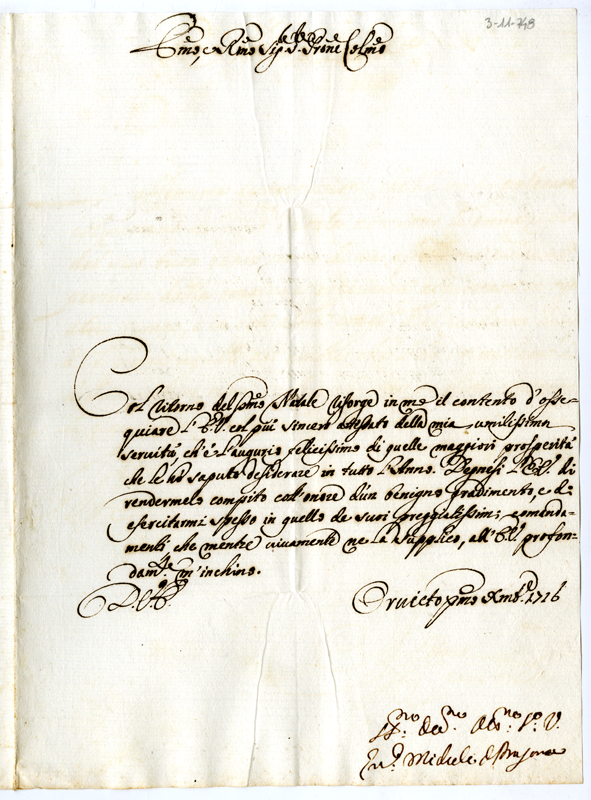 3-11-749
Emo, e Rmo Sig.r Sig.r Prone Colmo
Col ritorno del Smo Natale risorge in me il contento d'osse-
quiare l'E.V. col più sincero attestato della mia umilissima
servitù, ch'è l'augurio felicissimo di quelle maggiori prosperità
che le hò saputo desiderare in tutto l'Anno. Degnisi l'E.V. di
rendermelo compito coll'onore d'un benigno gradimento, e di
esercitarmi spesso in quello de suoi preggiatissimi comanda-
menti che mentre vivamente ne la supplico, all'E.V. profon-
damte. m'inchino.
D. E. V.
Orvieto pmo Xmbre 1716
Michele